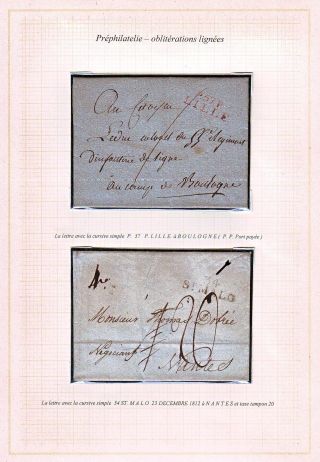 Préphilatelie – oblitérations lignées
P 57 P
LILLE
Au Citoyen
colonel du 9e Regiment
D'infanterie de ligne
au camp de Boulogne
La lettre avec la cursive simple P 57 P. LILLE à BOULOGNE ( P. P. Port payée )
ST MALO
Monsieur Thomas
Négociant
Nantes
La lettre avec la cursive simple 34 ST. MALO 23 DECEMBRE 1812 à NANTES et taxe tampon 20